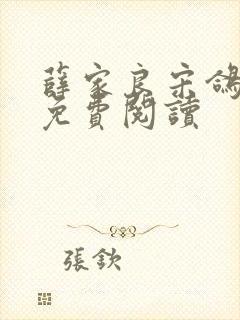 薛家良宋鴿
免費閱讀
張欽